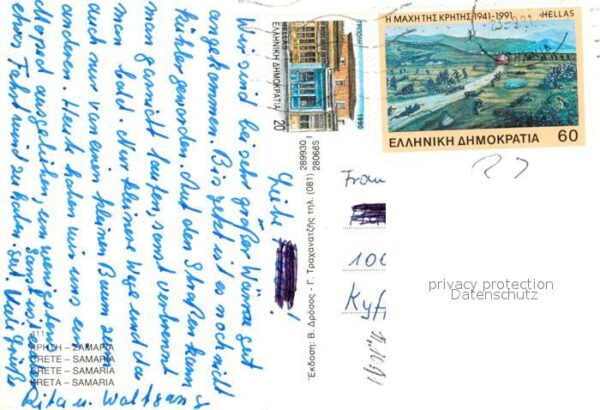 Liebe
Wir sind bei sehr großer Wärme gut
angekommen. Bis jetzt ist es noch nicht
kühler geworden. Auf den Straßen kann
man garnicht laufen, sonst verbrennt
man bald. Nur kleinere Wege und da
auch nur an einem kleinen Baum zum
anderen. Heute haben wir uns ein
Moped ausgeliehen, um wenigstens
etwas Fahrtwind zu haben. Viele Grüße
Rita u. Wolfgang
411
ΚΡΗΤΗ – ΣΑΜΑΡΙΑ
CRETE – SAMARIA
CRETE – SAMARIA
KRETA – SAMARIA
Έκδοση: Β. Δρόσος - Γ. Τραχανατζής τηλ. (081) 289930 / 280685
ΕΛΛΗΝΙΚΗ ΔΗΜΟΚΡΑΤΙΑ
20
1990
Η ΜΑΧΗ ΤΗΣ ΚΡΗΤΗΣ 1941-1991
HELLAS
ΕΛΛΗΝΙΚΗ ΔΗΜΟΚΡΑΤΙΑ 60
Frau
100
Kyff
privacy protection
Datenschutz